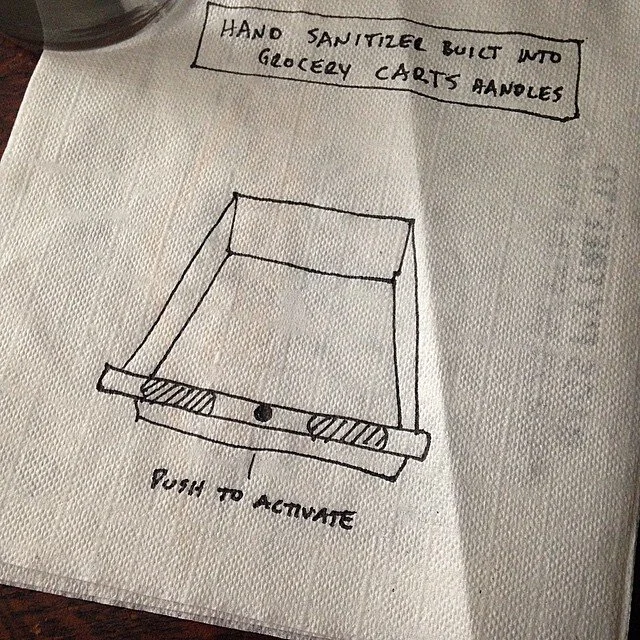 HAND SANITIZER BUILT INTO
GROCERY CARTS HANDLES
PUSH TO ACTIVATE